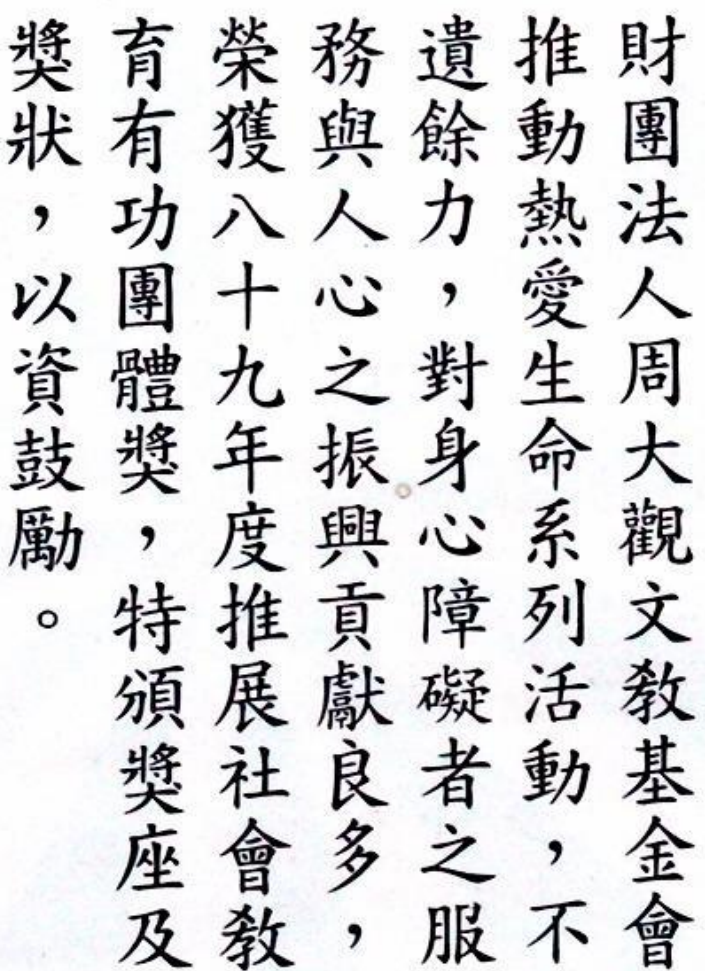 財團法人周大觀文教基金會
推動熱愛生命系列活動，不
遺餘力，對身心障礙者之服
務與人心之振興貢獻良多，
榮獲八十九年度推展社會教
育有功團體獎，特頒獎座及
獎狀，以資鼓勵。